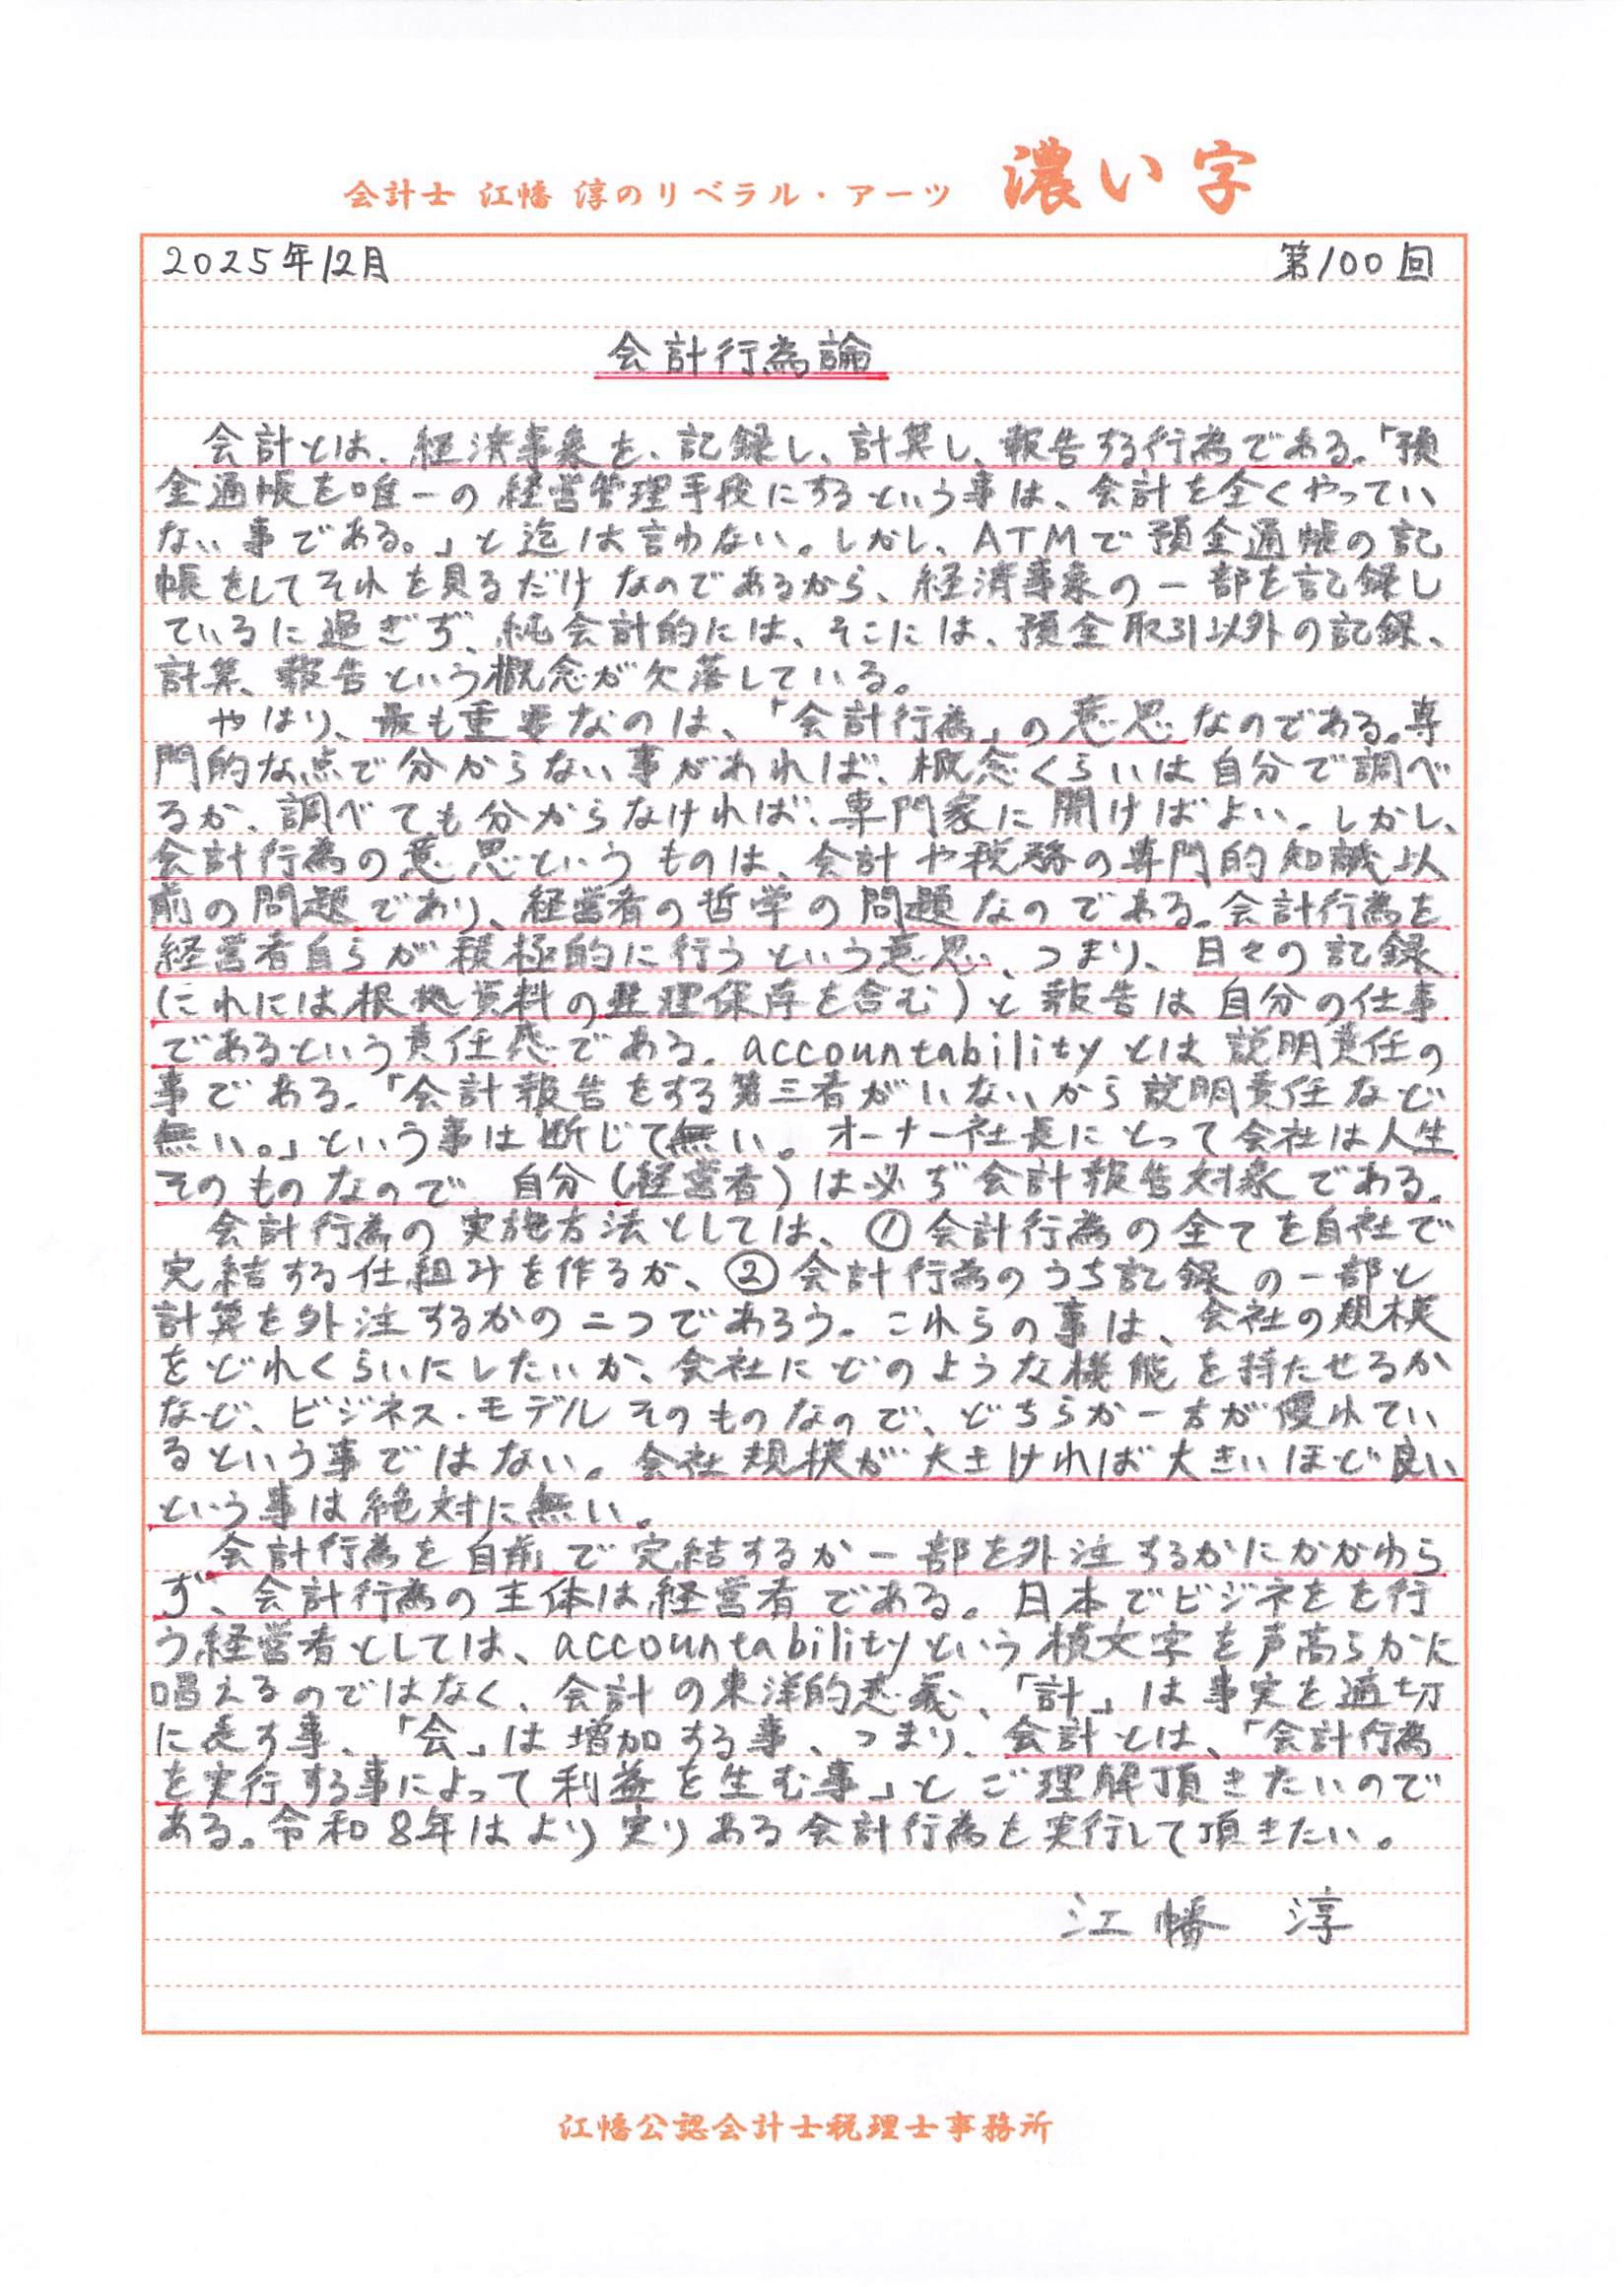 会計士 江幡 淳のリベラル・アーツ 濃い字
2025年12月 第100回
会計行為論
会計とは、経済事象を、記録し、計算し、報告する行為である。「預
金通帳を唯一の経営管理手段にするという事は、会計を全くやってい
ない事である。」と迄は言わない。しかし、ATMで預金通帳の記
帳をしてそれを見るだけなのであるから、経済事象の一部を記録し
ているに過ぎず、純会計的には、そこには、預金取引以外の記録、
計算、報告という概念が欠落している。
やはり、最も重要なのは、「会計行為」の意思なのである。専
門的な点で分からない事があれば、概念くらいは自分で調べ
るか、調べても分からなければ、専門家に聞けばよい。しかし、
会計行為の意思というものは、会計や税務の専門的知識以
前の問題であり、経営者の哲学の問題なのである。会計行為を
経営者自らが積極的に行うという意思、つまり、日々の記録
(これには根拠資料の整理保存を含む)と報告は自分の仕事
であるという責任感である。accountabilityとは説明責任の
事である。「会計報告をする第三者がいないから説明責任など
無い。」という事は断じて無い。オーナー社長にとって会社は人生
そのものなので、自分(経営者)は必ず会計報告対象である。
会計行為の実施方法としては、①会計行為の全てを自社で
完結する仕組みを作るか、②会計行為のうち記録の一部と
計算を外注するかの二つであろう。これらの事は、会社の規模
をどれくらいにしたいか、会社にどのような機能を持たせるか
など、ビジネス・モデルそのものなので、どちらか一方が優れてい
るという事ではない。会社規模が大きければ大きいほど良い
という事は絶対に無い。
会計行為を自前で完結するか一部を外注するかにかかわら
ず、会計行為の主体は経営者である。日本でビジネをを行
う経営者としては、accountabilityという横文字を声高らかに
唱えるのではなく、会計の東洋的意義、「計」は事実を適切
に表す事、「会」は増加する事、つまり、会計とは、「会計行為
を実行する事によって利益を生む事」とご理解頂きたいので
ある。令和8年はより実りある会計行為を実行して頂きたい。
江幡 淳
江幡公認会計士税理士事務所